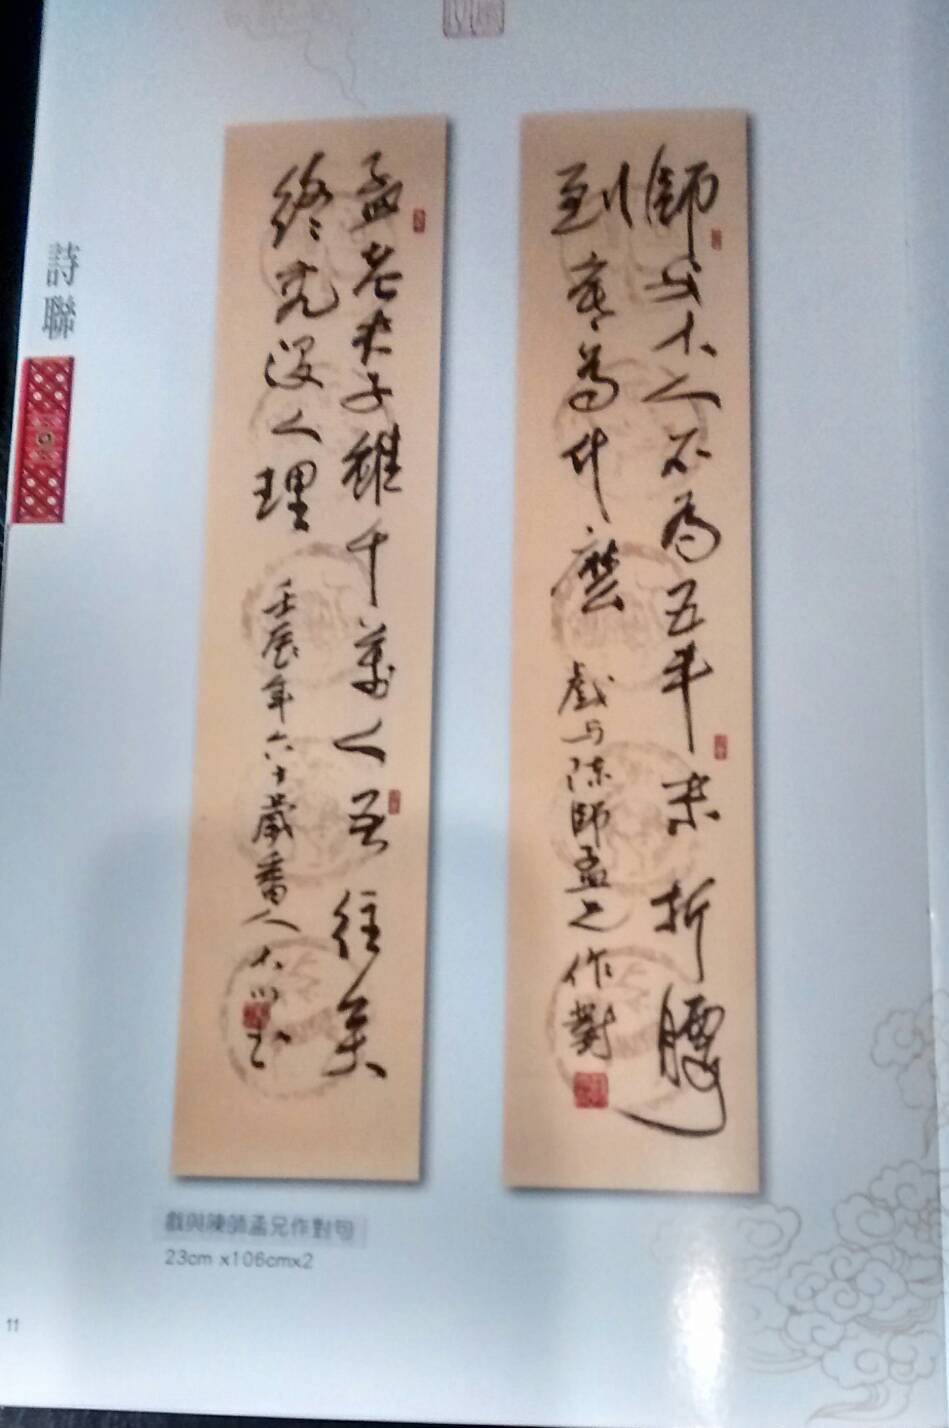 詩聯
師大人不為五斗米折腰
到底為什麼
戲与陳師孟兄作對
孟老夫子雖千萬人吾往矣
終究沒人理
壬辰年六十歲番人
戲與陳師孟兄作對句
23cm x106cmx2
11